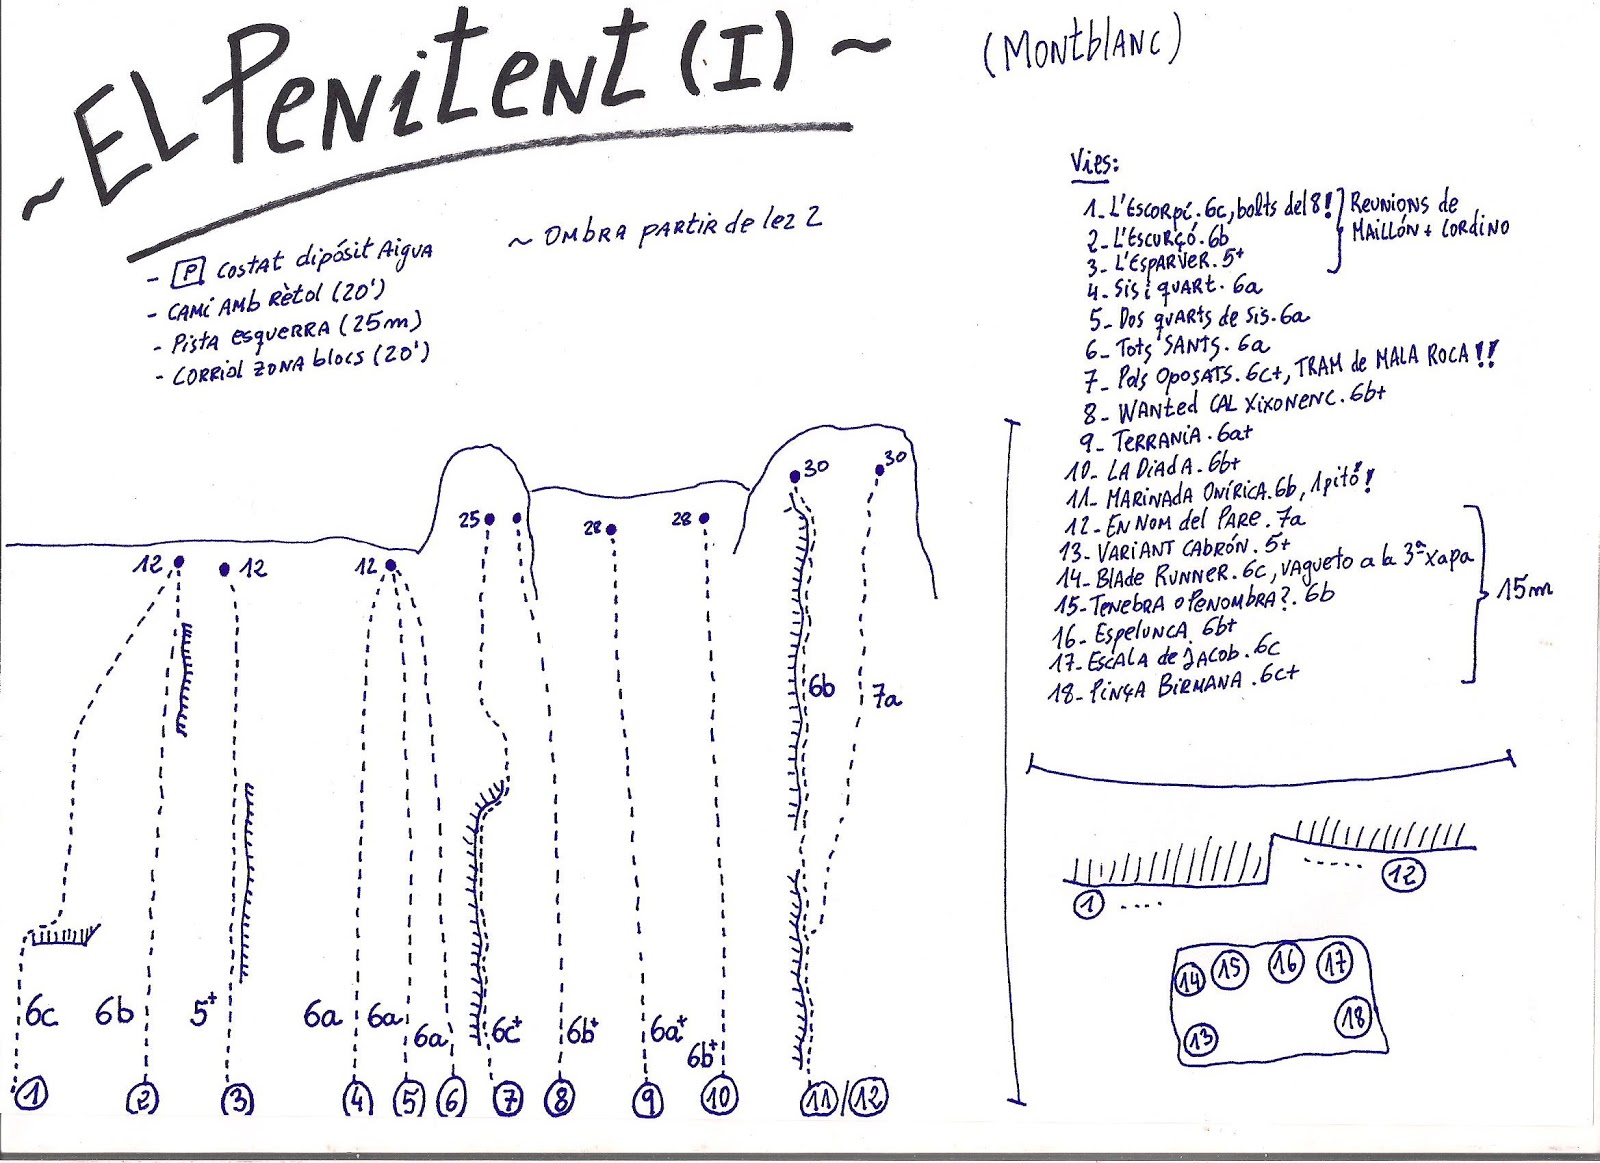 ~ EL PENITENT (I) ~
(MONTBLANC)
- P COSTAT dipósit AIGUA
- CAMÍ AMB RÈTOL (20')
- PISTA ESQUERRA (25m)
- CORRIOL ZONA blocs (20')
~ OMBRA PARTIR de les 2
Vies:
1_ L'ESCORPÍ. 6c, bolts del 8!
2_ L'ESCURÇÓ. 6b
3_ L'ESPARVER. 5+
REUNIONS de
MAILLÓN + CORDINO
4_ SIS i QUART. 6a
5_ DOS QUARTS de SIS. 6a
6_ TOTS SANTS. 6a
7_ POLS OPOSATS. 6c+, TRAM de MALA ROCA!!
8_ WANTED CAL XIXONENC. 6b+
9_ TERRANIA. 6a+
10_ LA DIADA. 6b+
11_ MARINADA ONÍRICA. 6b, 1 pitó!
12_ EN NOM del PARE. 7a
13_ VARIANT CABRÓN. 5+
14_ BLADE RUNNER. 6c, VAGUETO a la 3ª xapa
15_ TENEBRA O PENOMBRA?. 6b
16_ ESPELUNCA 6b+
17_ ESCALA de JACOB. 6c
18_ PINÇA BIRMANA. 6c+
15m
30 30
25 28 28
12 12 12
6b 7a
6c 6b 5+ 6a 6a 6a 6c+ 6b+ 6a+ 6b+
1 2 3 4 5 6 7 8 9 10 11/12
1 .... ..... 12
14 15 16 17
13 18